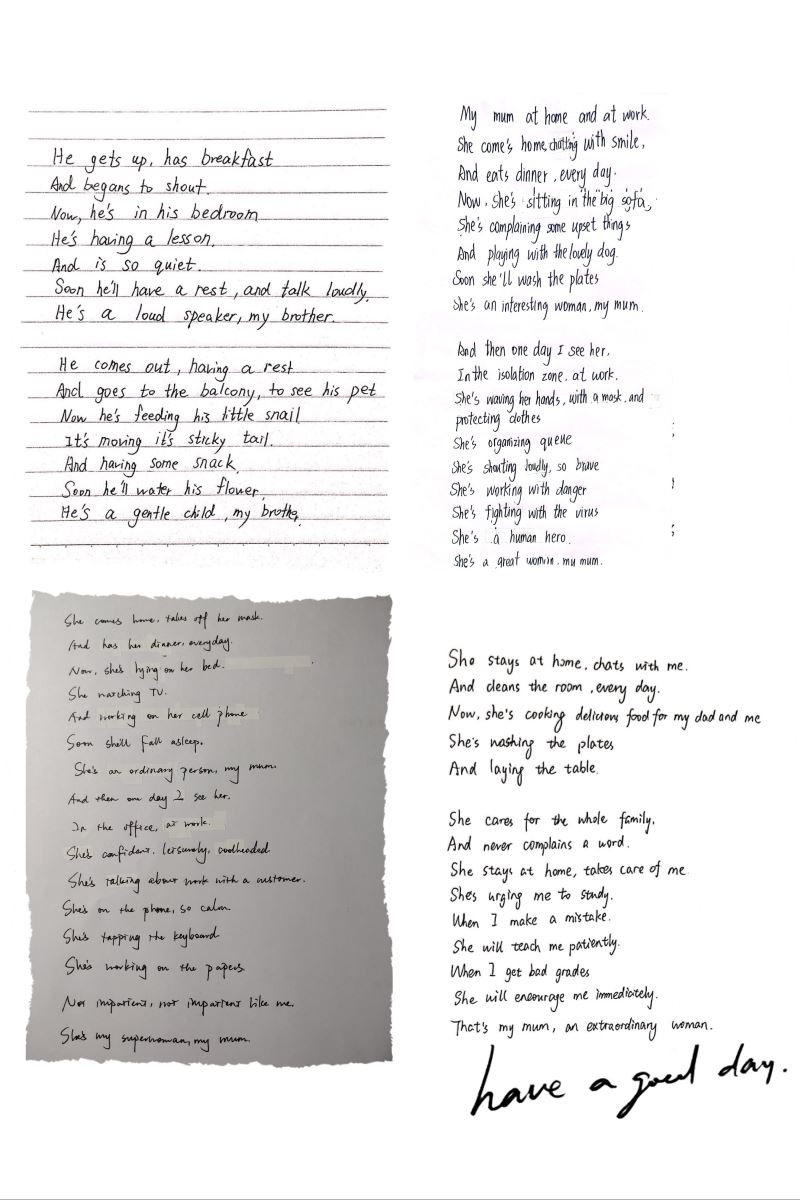 He gets up, has breakfast
And begans to shout.
Now, he's in his bedroom
He's having a lesson.
And is so quiet.
Soon he'll have a rest, and talk loudly.
He's a loud speaker, my brother.
He comes out, having a rest
And goes to the balcony, to see his pet
Now he's feeding his little snail
It's moving it's sticky tail.
And having some snack.
Soon he'll water his flower.
He's a gentle child, my brother.
My mum at home and at work.
She come's home, chatting with smile,
And eats dinner, every day.
Now, she's sitting in the big sofa,
She's complaining some upset things
And playing with the lovely dog.
Soon she'll wash the plates
She's an interesting woman, my mum.
And then one day I see her,
In the isolation zone, at work.
She's waving her hands, with a mask and
protecting clothes
She's organizing queue
She's shouting loudly, so brave
She's working with danger
She's fighting with the virus
She's a human hero.
She's a great woman, my mum.
She comes home, takes off her mask.
And has her dinner, everyday.
Now, she's lying on her bed.
She watching TV.
And working on her cell phone
Soon she'll fall asleep.
She's an ordinary person, my mum.
And then one day I see her.
In the office, at work.
She's confident, leisurely, coolheaded
She's talking about work with a customer.
She's on the phone, so calm.
She's tapping the keyboard
She's working on the papers
Not impatient, not impatient like me.
She's my superwoman, my mum.
She stays at home, chats with me.
And cleans the room, every day.
Now, she's cooking delicious food for my dad and me
She's washing the plates
And laying the table.
She cares for the whole family.
And never complains a word.
She stays at home, takes care of me
She's urging me to study.
When I make a mistake.
She will teach me patiently.
When I get bad grades
She will encourage me immediately.
That's my mum, an extraordinary woman.
have a good day.